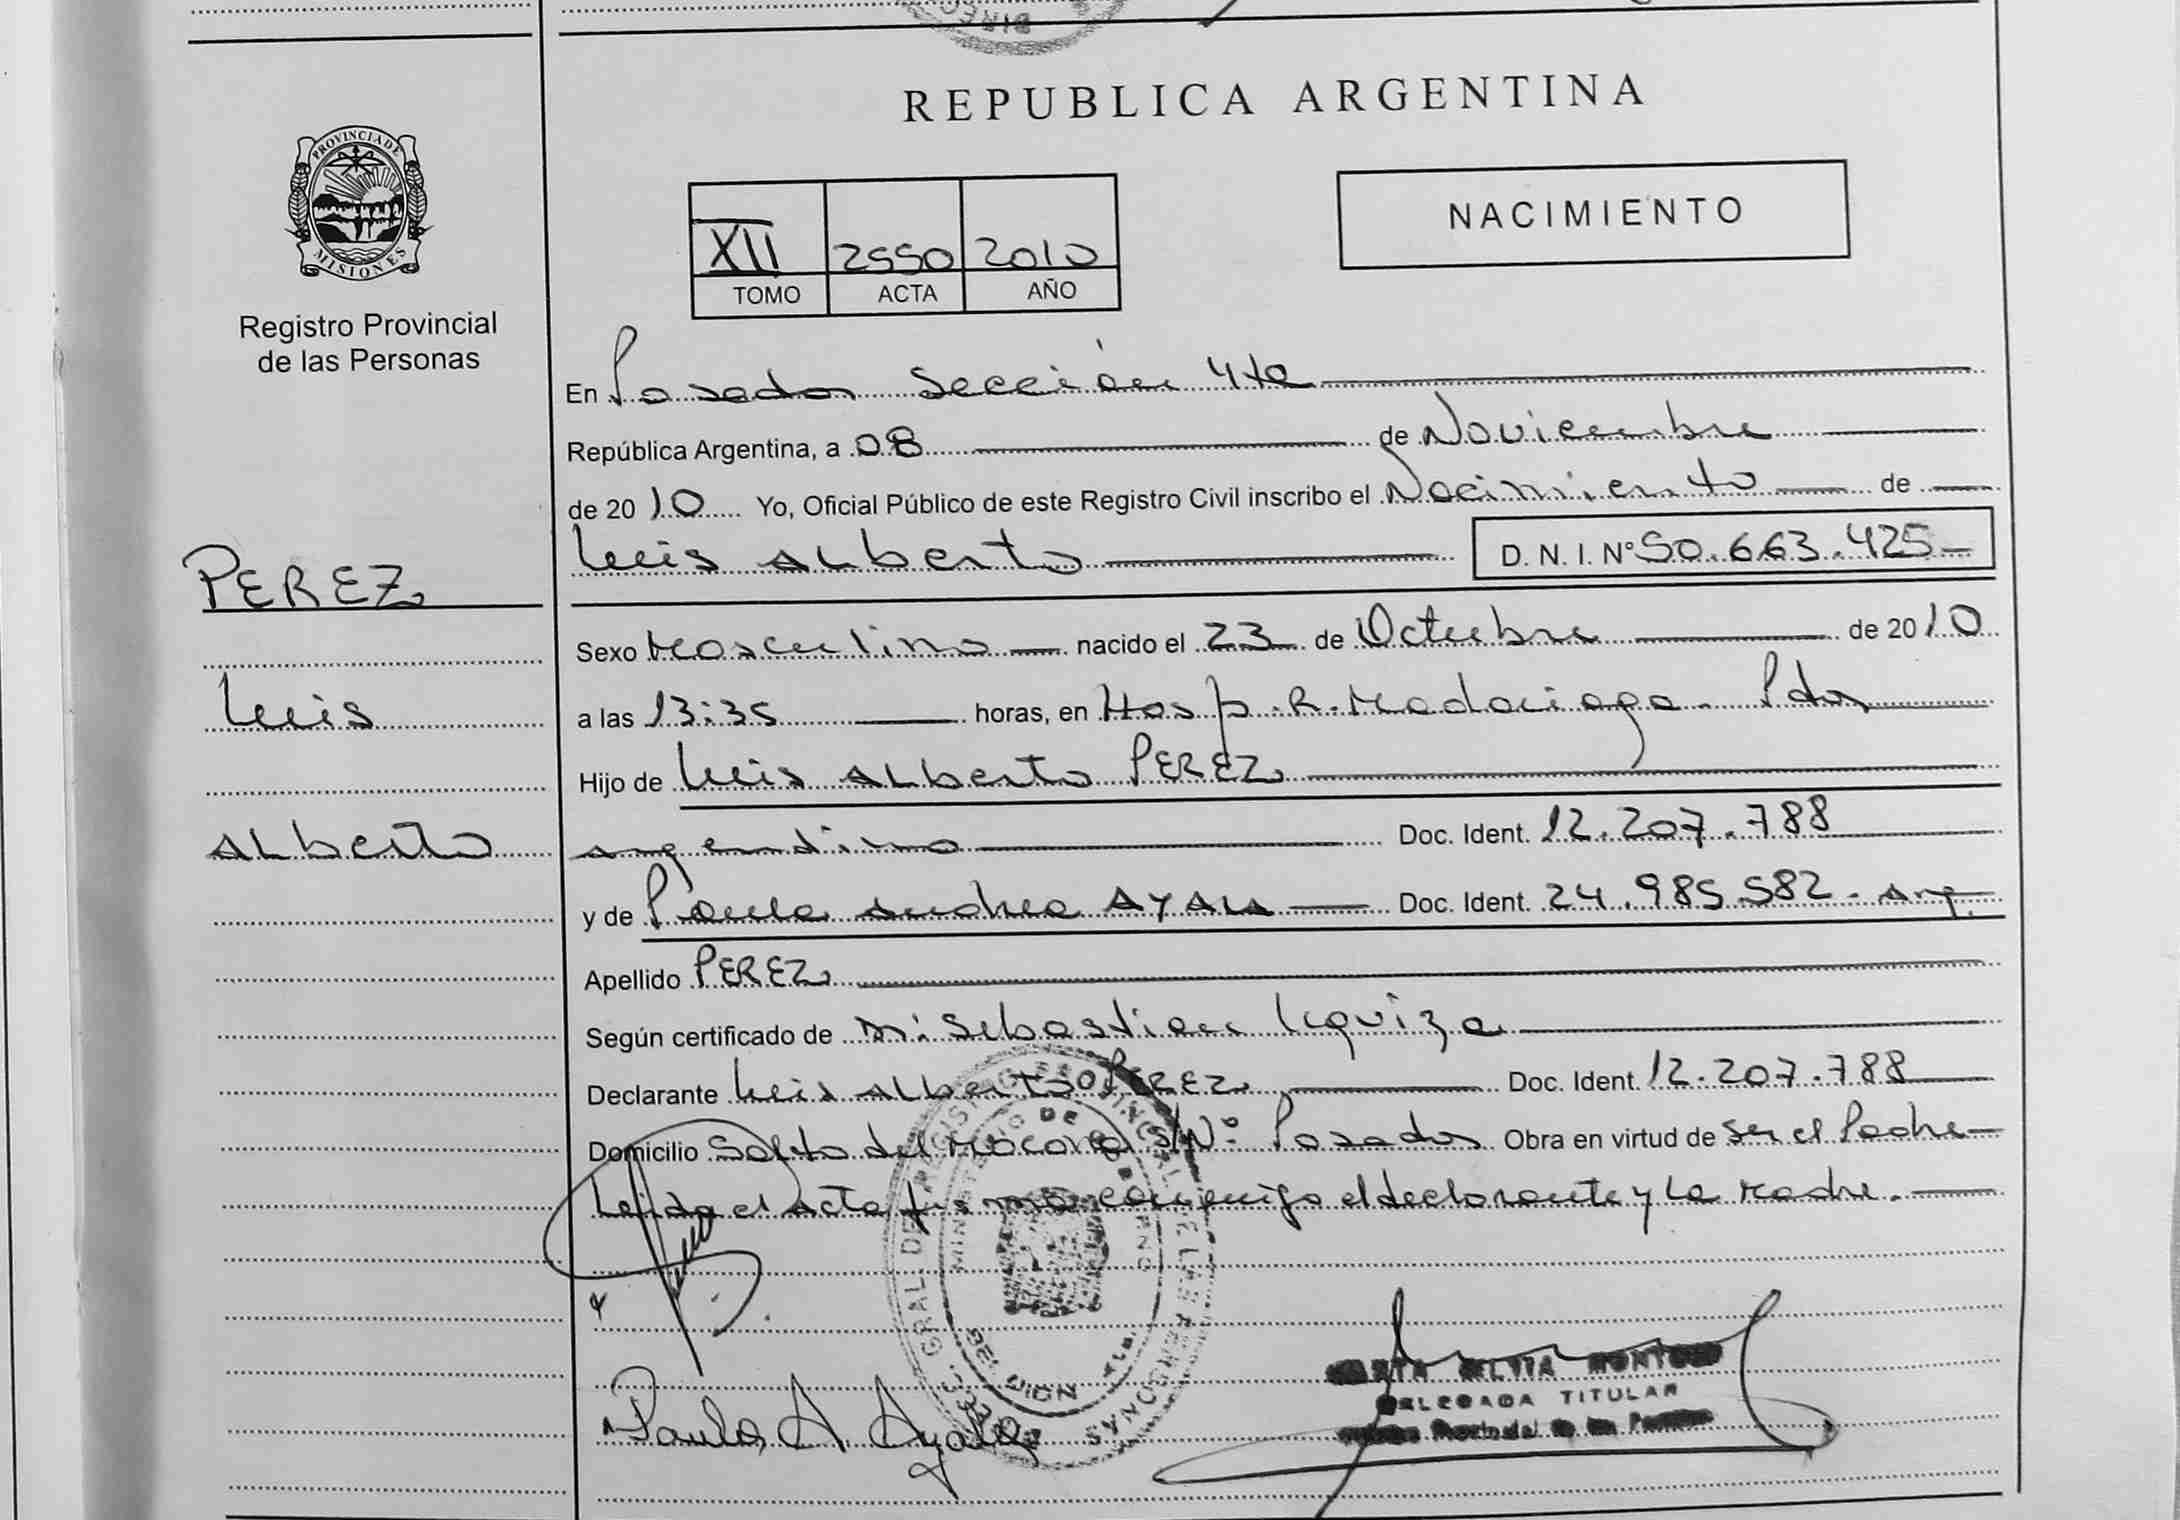 REPUBLICA ARGENTINA
PROVINCIA DE
MISIONES
Registro Provincial
de las Personas
NACIMIENTO
XII 2550 2010
TOMO ACTA AÑO
En Posadas Sección 4ta
República Argentina, a 08 de Noviembre
de 2010 Yo, Oficial Público de este Registro Civil inscribo el Nacimiento de
Luis Alberto D. N. I. Nº 50.663.425
PEREZ
Luis
Alberto
Sexo Masculino nacido el 23 de Octubre de 2010
a las 13:35 horas, en Hosp. R. Madariaga - Pdas
Hijo de Luis Alberto PEREZ
argentino Doc. Ident. 12.207.788
y de Paula Andrea AYALA Doc. Ident. 24.985.582 - Arg.
Apellido PEREZ
Según certificado de Sebastian Uquiza
Declarante Luis Alberto PEREZ Doc. Ident. 12.207.788
Domicilio Salto del Mocona S/Nº Posadas Obra en virtud de ser el Padre
Leída el acta firma conmigo el declarante y la Madre.
Paula A. Ayala
DELEGADA TITULAR